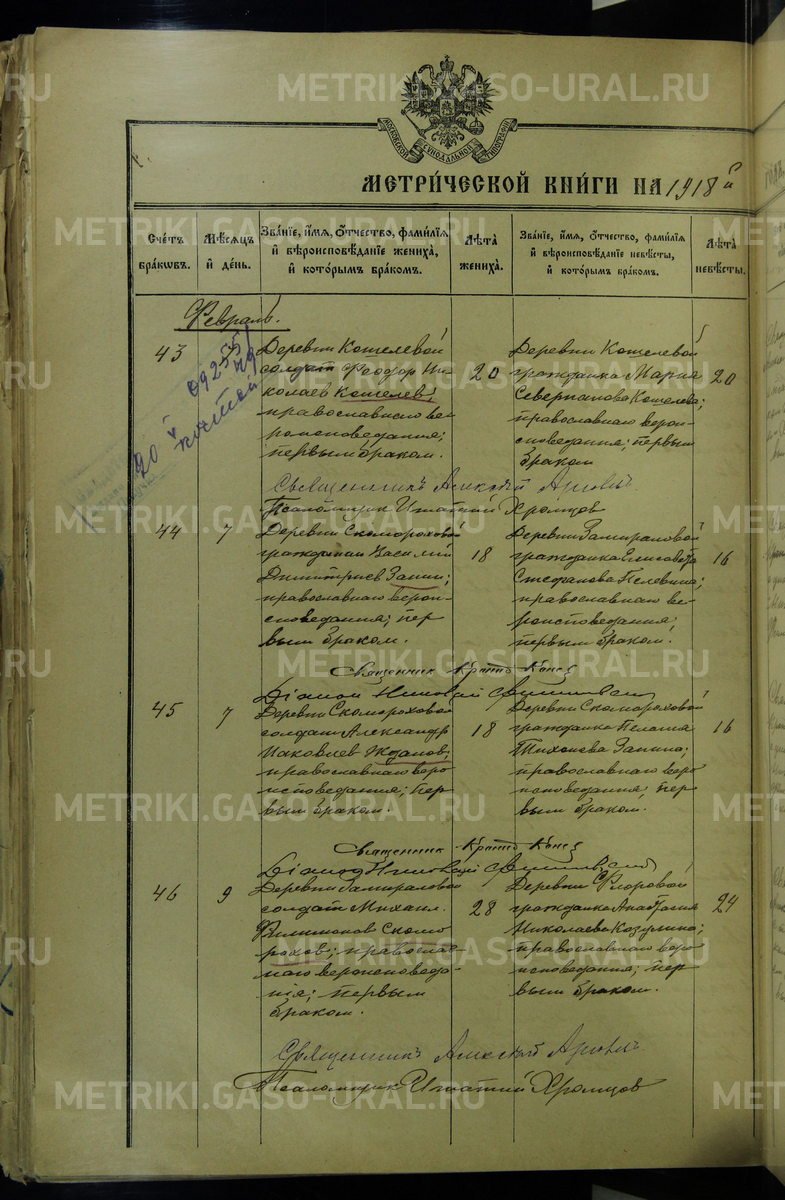 МОСКОВСКОЙ СУНОДАЛЬНОЙ ТИПОГРАФІИ
МЕТРИ́ЧЕСКОЙ КНИ́ГИ НА 1918 й
Сче́тъ бра́ковъ.
Мѣ́сяцъ и́ де́нь.
Зва́нїе, и́мя, о́тчество, фами́лїя и́ вѣроисповѣ́данїе жениха̀, и́ кото́рымъ бра́комъ.
Лѣ́та жениха̀.
Зва́нїе, и́мя, о́тчество, фами́лїя и́ вѣроисповѣ́данїе невѣ́сты, и́ кото́рымъ бра́комъ.
Лѣ́та невѣ́сты.
Февраль.
43
Деревни Кошелевой
солдат Феодор Ни-
колаев Кошелев;
православнаго ве-
роисповедания;
первым браком.
20
Деревни Кошелевой
гражданка Мария
Кошелева;
православнаго верои-
споведания; первым
браком
20
Священникъ Алексѣй
Псаломщик Игнатий Хромцов
44
7
Деревни Скомороховой
гражданин Василий
Димитриев Занин;
православнаго верои-
споведания; пер
вым браком.
18
Деревни
гражданка Елисавета
Стефанова Пелевина;
православнаго ве-
роисповедания;
первым браком.
16
Священник
Діакон Николай
45
7
Деревни Скомороховой
солдат Александр
Иаковлев Жданов;
православнаго веро
исповедания; пер
вым браком.
18
Деревни Скомороховой
гражданка Пелагия
Тихонова Занина;
православнаго веро
исповедания, пер
вым браком.
16
Священник
Діакон Николай
46
9
Деревни
солдат Михаил
Филимонов Скомо
рохов; православ
наго вероисповеда-
нія; первым
браком.
28
Деревни Флоровой
гражданка Анастасия
Николаева
православнаго веро
исповедания; пер
вым браком.
24
Священникъ Алексѣй
Псаломщик Игнатий Хромцов
METRIKI.GASO-URAL.RU